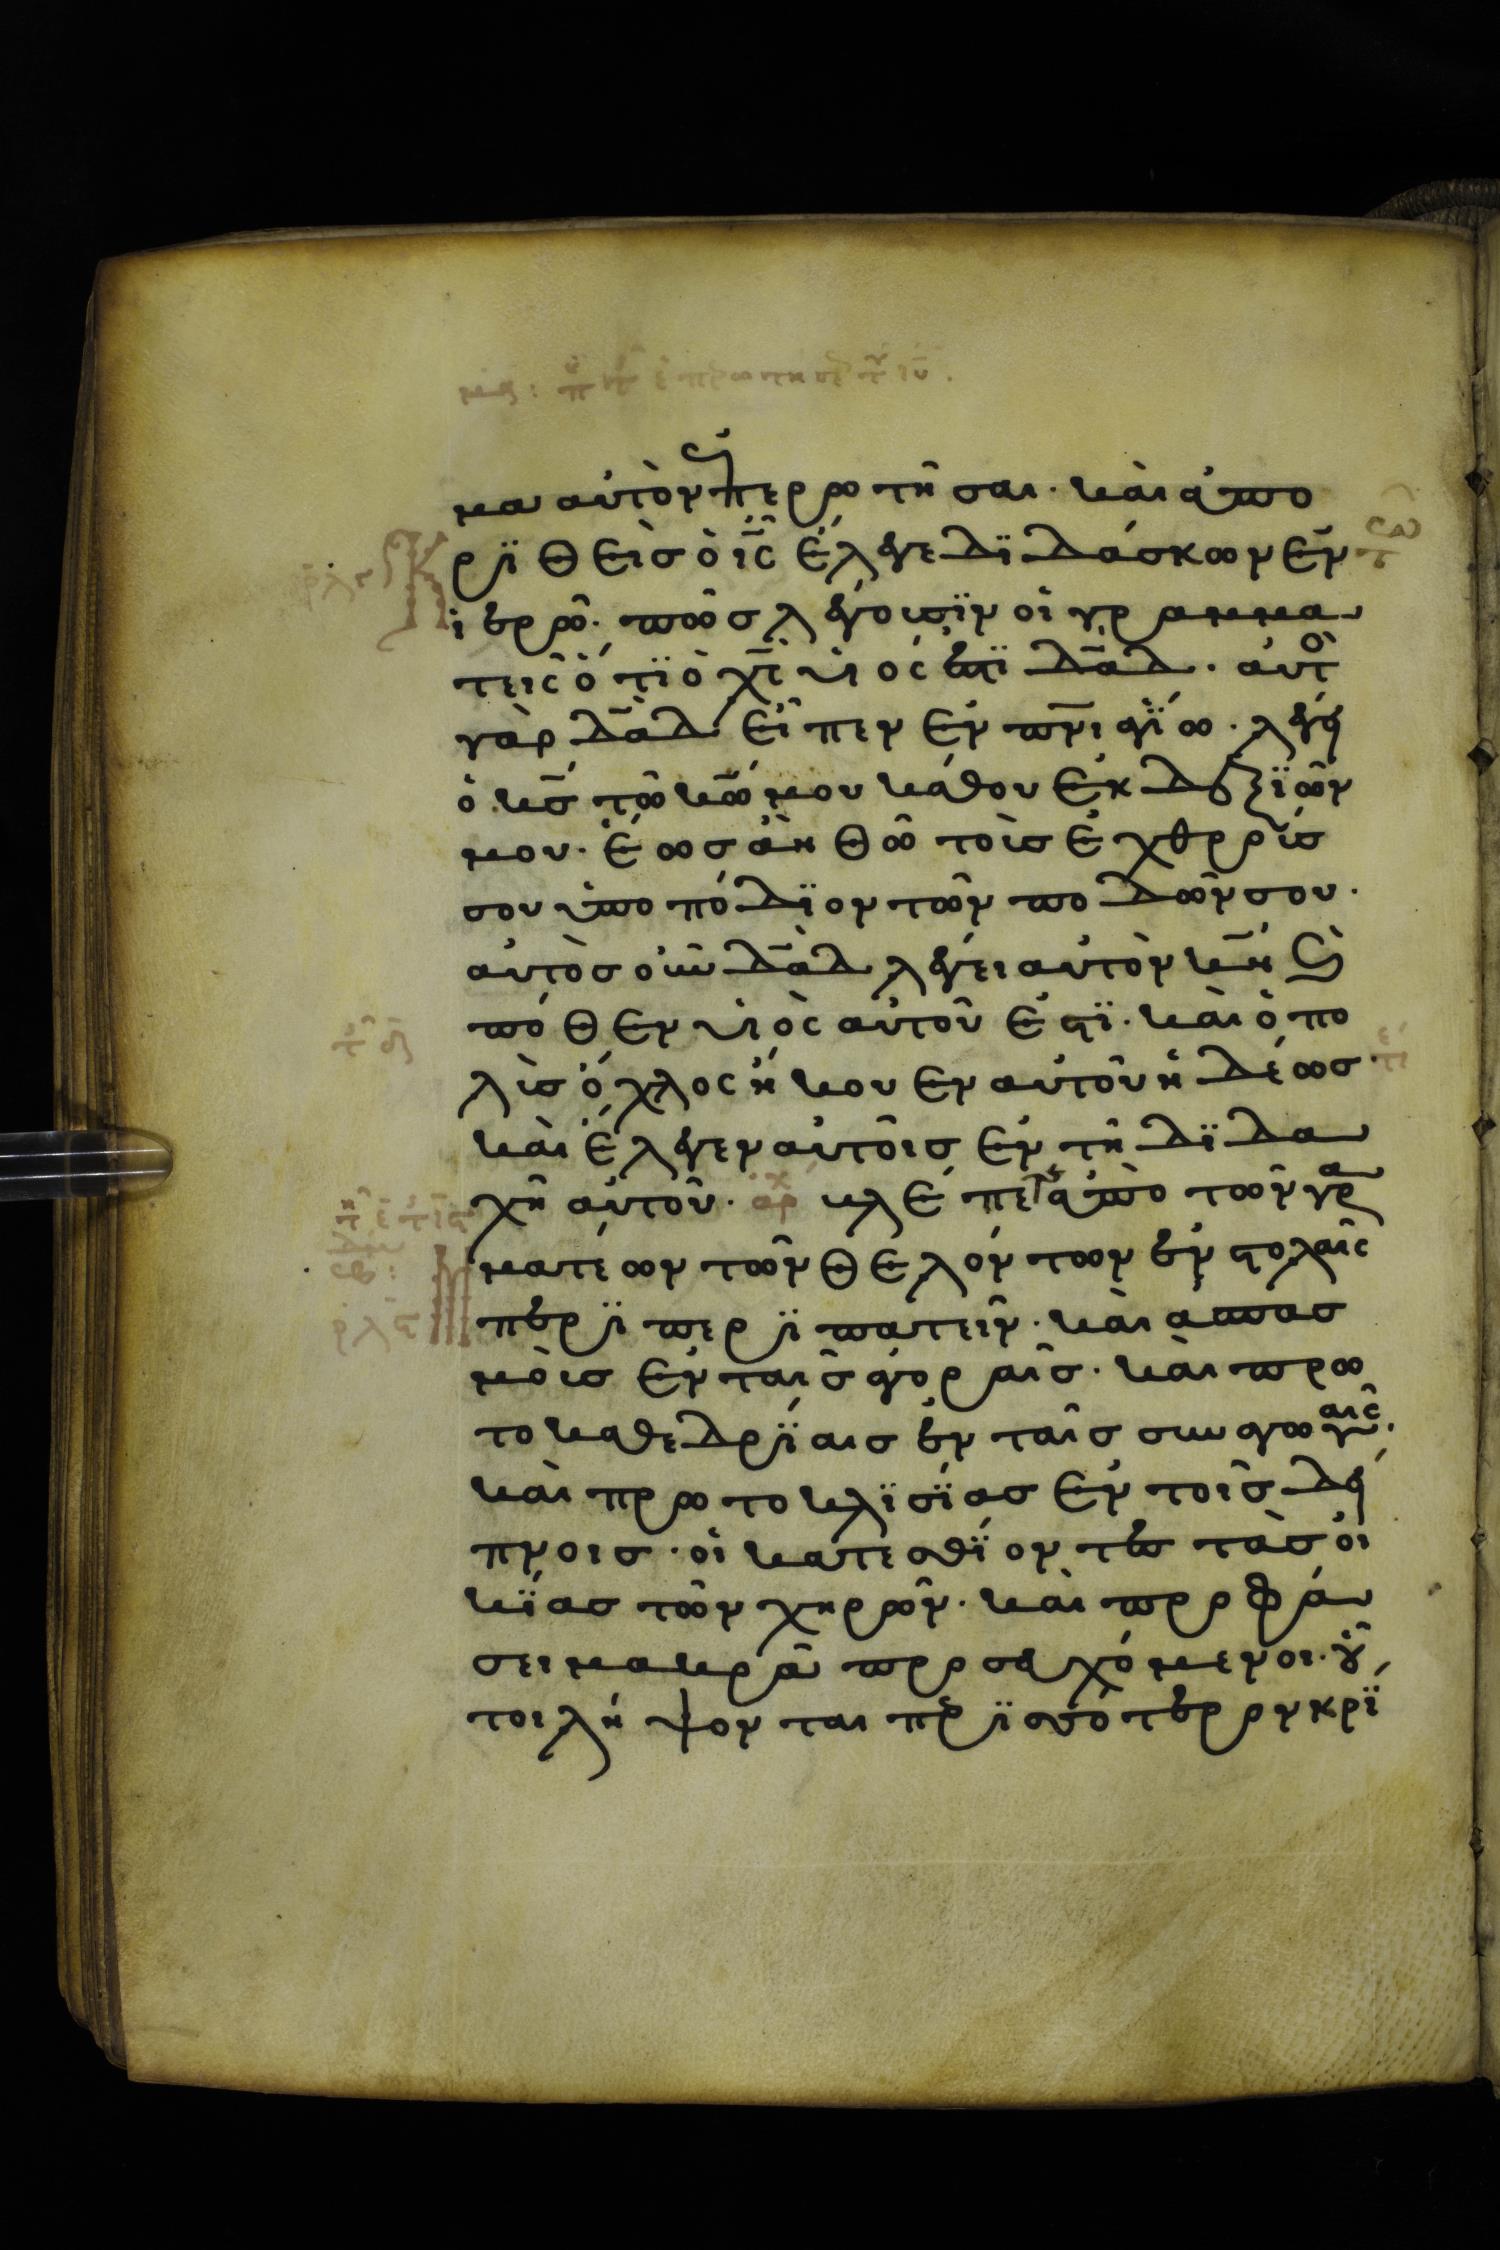 μα αὐτὸν ἐπερωτῆσαι· καὶ ἀπο
κριθεὶς ὁ ις ἔλεγε διδάσκων ἐν
ἱερῶ· πῶς λέγουσϊν οἱ γραμμα
τεις ὅτϊ ὁ χς υἱός ἐστϊ δαδ· αὐτὸ
γὰρ δαδ εἶπεν ἐν πνι ἁγίω· λέγει
ὁ κς τῶ κω μου κάθου ἐκ δεξϊῶν
μου· ἕως ἂν θῶ τοὺς ἐχθρούς
σου ὑποπόδϊον τῶν ποδῶν σου·
αὐτὸς οὖν δαδ λέγει αὐτὸν κν κὶ
πόθεν υἱὸς αὐτοῦ ἐστϊ· καὶ ὁ πο
λὺς ὄχλος ἤκουεν αὐτοῦ ἡδέως·
καὶ ἔλεγεν αὐτοῖς ἐν τῆ διδα
χῆ αὐτοῦ· αρχ βλέπετε ἀπὸ τῶν γρα
ματέων τῶν θελόντων ἐν στολαῖς
περιπατεῖν· καὶ ἀσπασ
μοὺς ἐν ταῖς ἀγοραῖς· καὶ πρω
τοκαθεδρίαις ἐν ταῖς συναγωγαις·
καὶ πρωτοκλϊσίας ἐν τοῖς δεί
πνοις· οἱ κατεσθίοντες τὰς οἰ
κίας τῶν χηρῶν· καὶ προφά
σει μακρᾶ προσευχόμενοι· οὗ
τοι λήψονται περισσότερον κρί